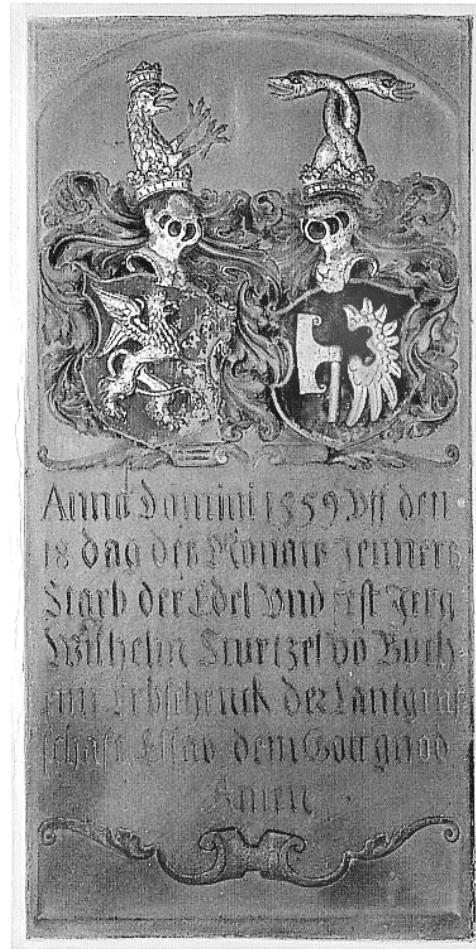 Anno Domini 1559 Vff den
18 dag des Monats Jenners
Starb der Edel Vnd fest Jerg
Wilhelm Sturtzel vō Buch
eim Erbschenck der Lantgraf
schaft Elsas dem Gott gnod
Amen